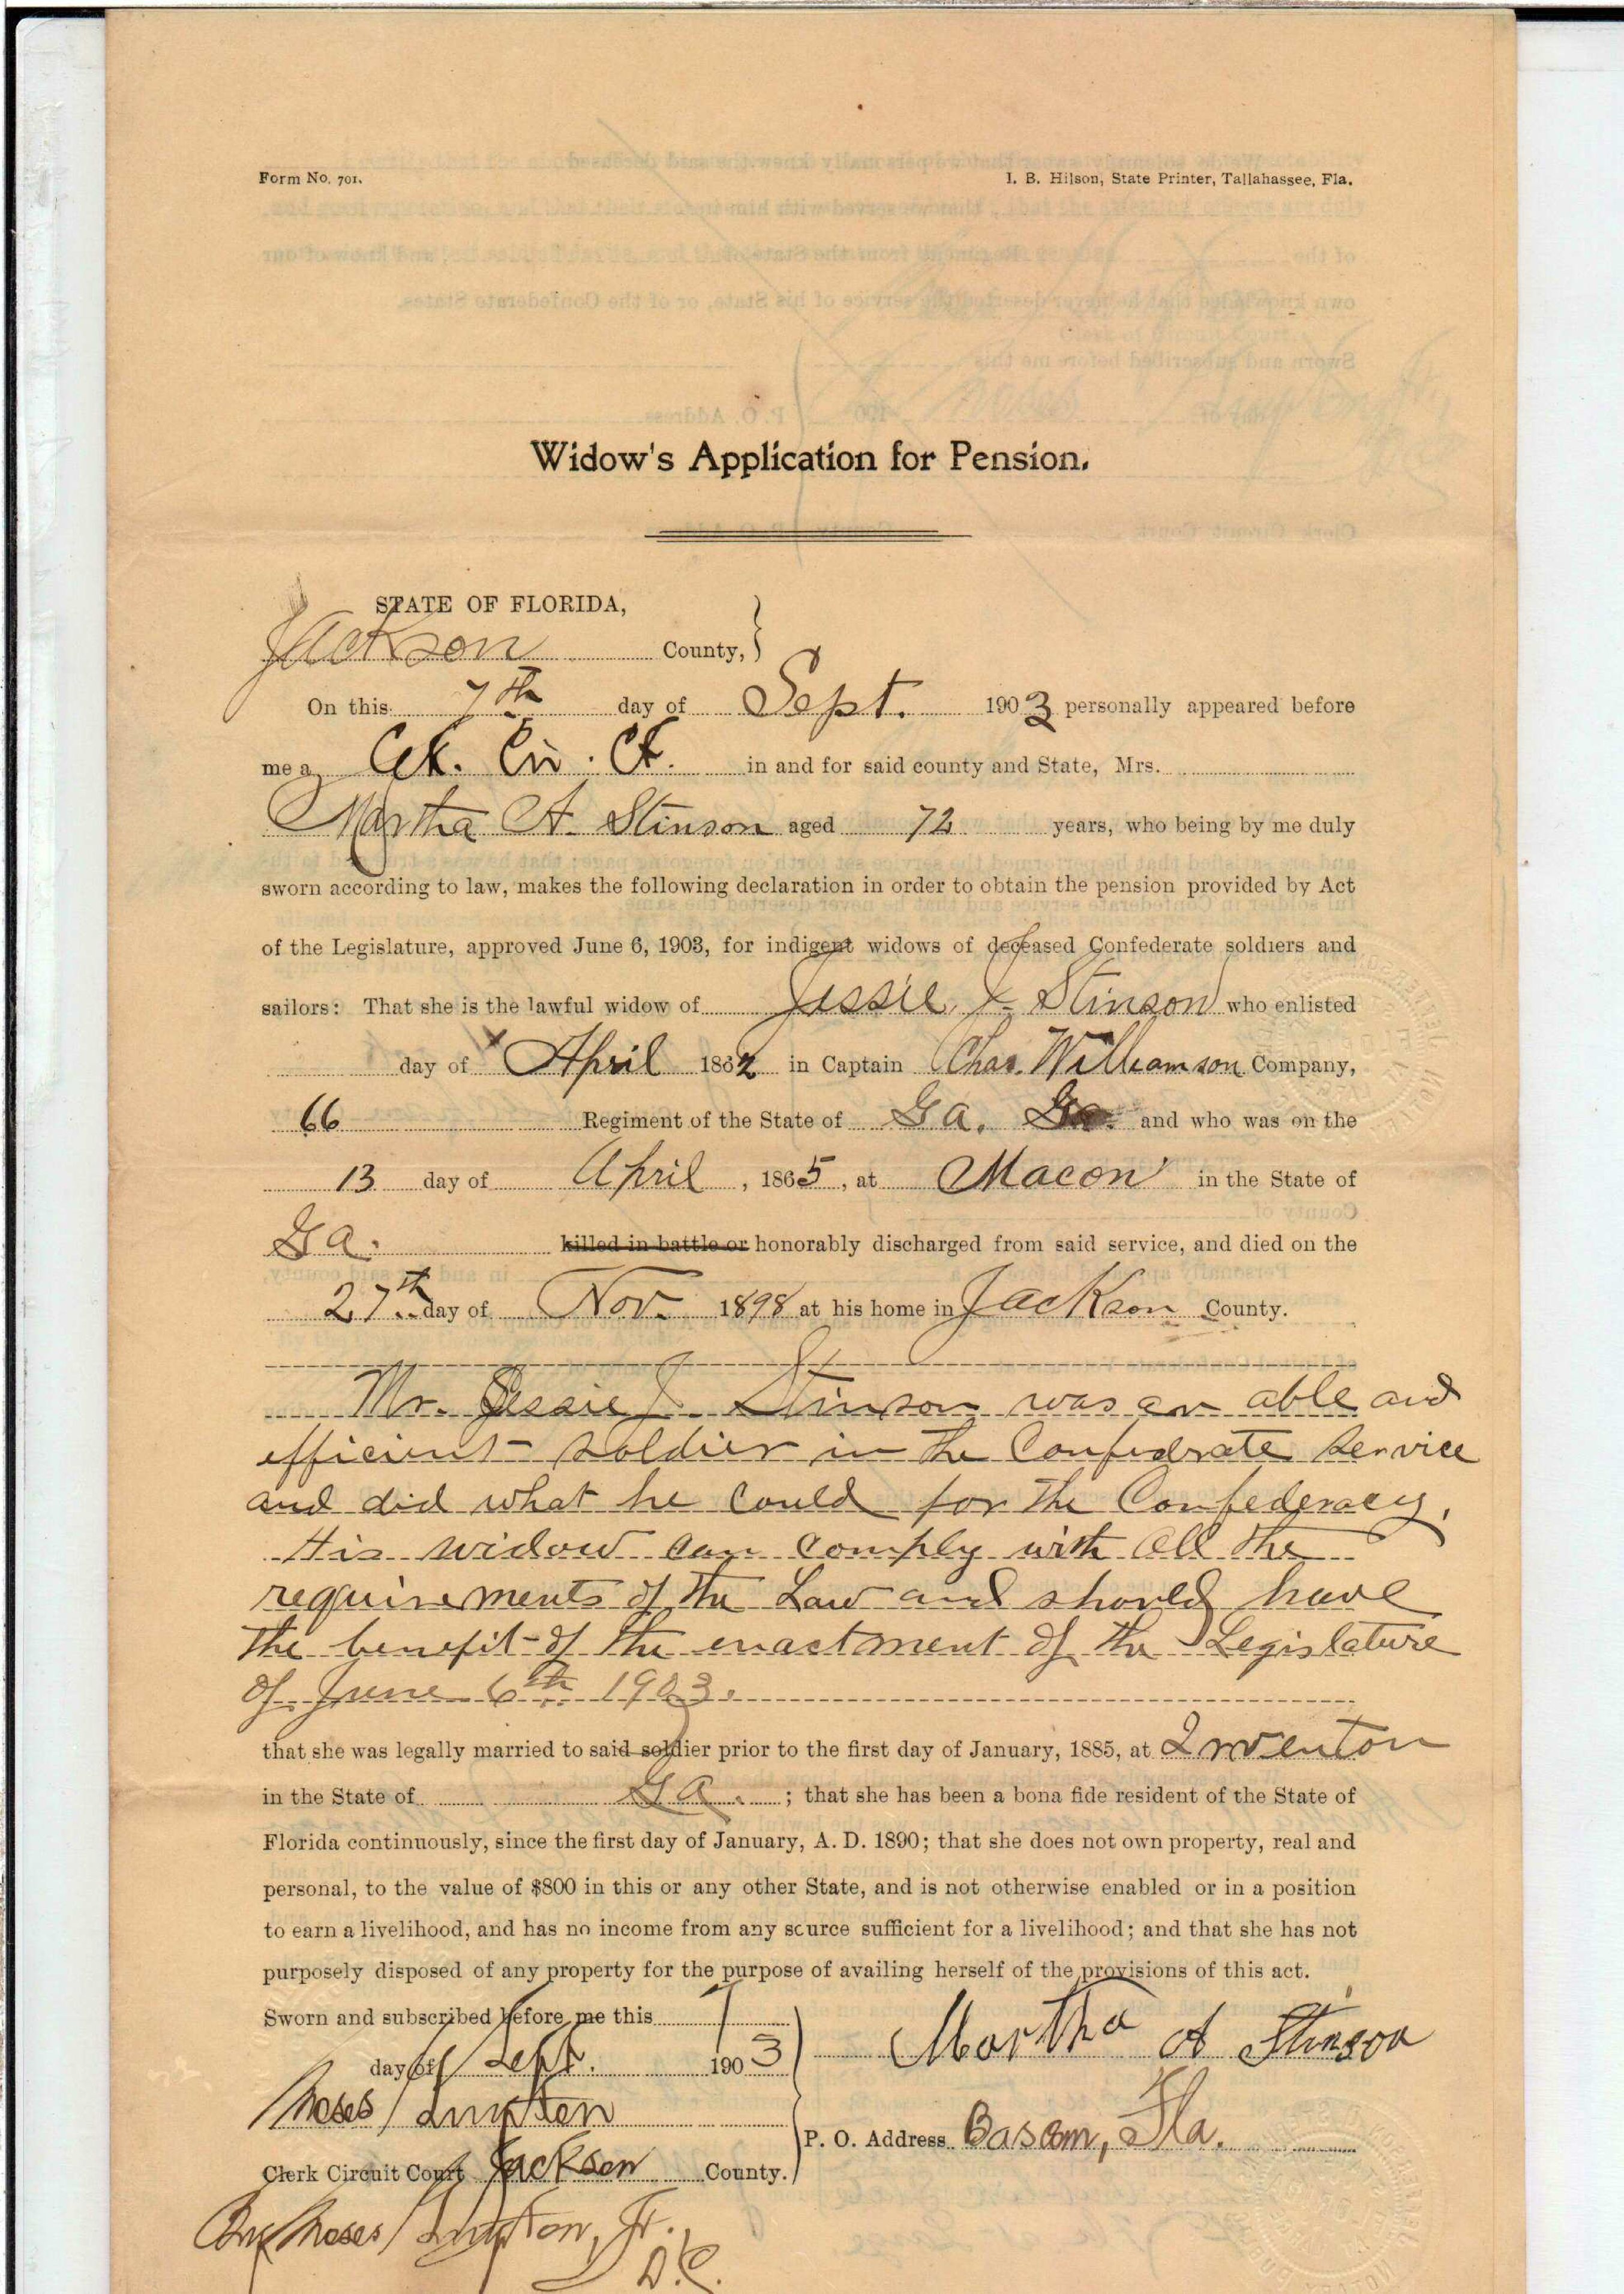 Form No. 701.
I. B. Hilson, State Printer, Tallahassee, Fla.
Widow's Application for Pension.
STATE OF FLORIDA,
Jackson County,
On this 7th day of Sept. 1903 personally appeared before
me a Clk. Cir. Ct. in and for said county and State, Mrs.
Martha A. Stinson aged 72 years, who being by me duly
sworn according to law, makes the following declaration in order to obtain the pension provided by Act
of the Legislature, approved June 6, 1903, for indigent widows of deceased Confederate soldiers and
sailors: That she is the lawful widow of Jessie J. Stinson who enlisted
day of April 1862 in Captain Chas. Williamson Company,
66 Regiment of the State of Ga. Ga. and who was on the
13 day of April, 1865, at Macon in the State of
Ga. killed in battle or honorably discharged from said service, and died on the
27th day of Nov. 1898 at his home in Jackson County.
Mr. Jessie J. Stinson was an able and
efficient soldier in the Confedrate service
and did what he could for the Confederacy.
His widow can comply with all the
requirements of the Law and should have
the benefit of the enactment of the Legislature
of June 6th 1903.
that she was legally married to said soldier prior to the first day of January, 1885, at
in the State of Ga.; that she has been a bona fide resident of the State of
Florida continuously, since the first day of January, A. D. 1890; that she does not own property, real and
personal, to the value of $800 in this or any other State, and is not otherwise enabled or in a position
to earn a livelihood, and has no income from any source sufficient for a livelihood; and that she has not
purposely disposed of any property for the purpose of availing herself of the provisions of this act.
Sworn and subscribed before me this 7
day of Sept. 1903
Martha A Stinson
Moses
P. O. Address Bascom, Fla.
Clerk Circuit Court Jackson County.
Moses Jr.,
D.C.